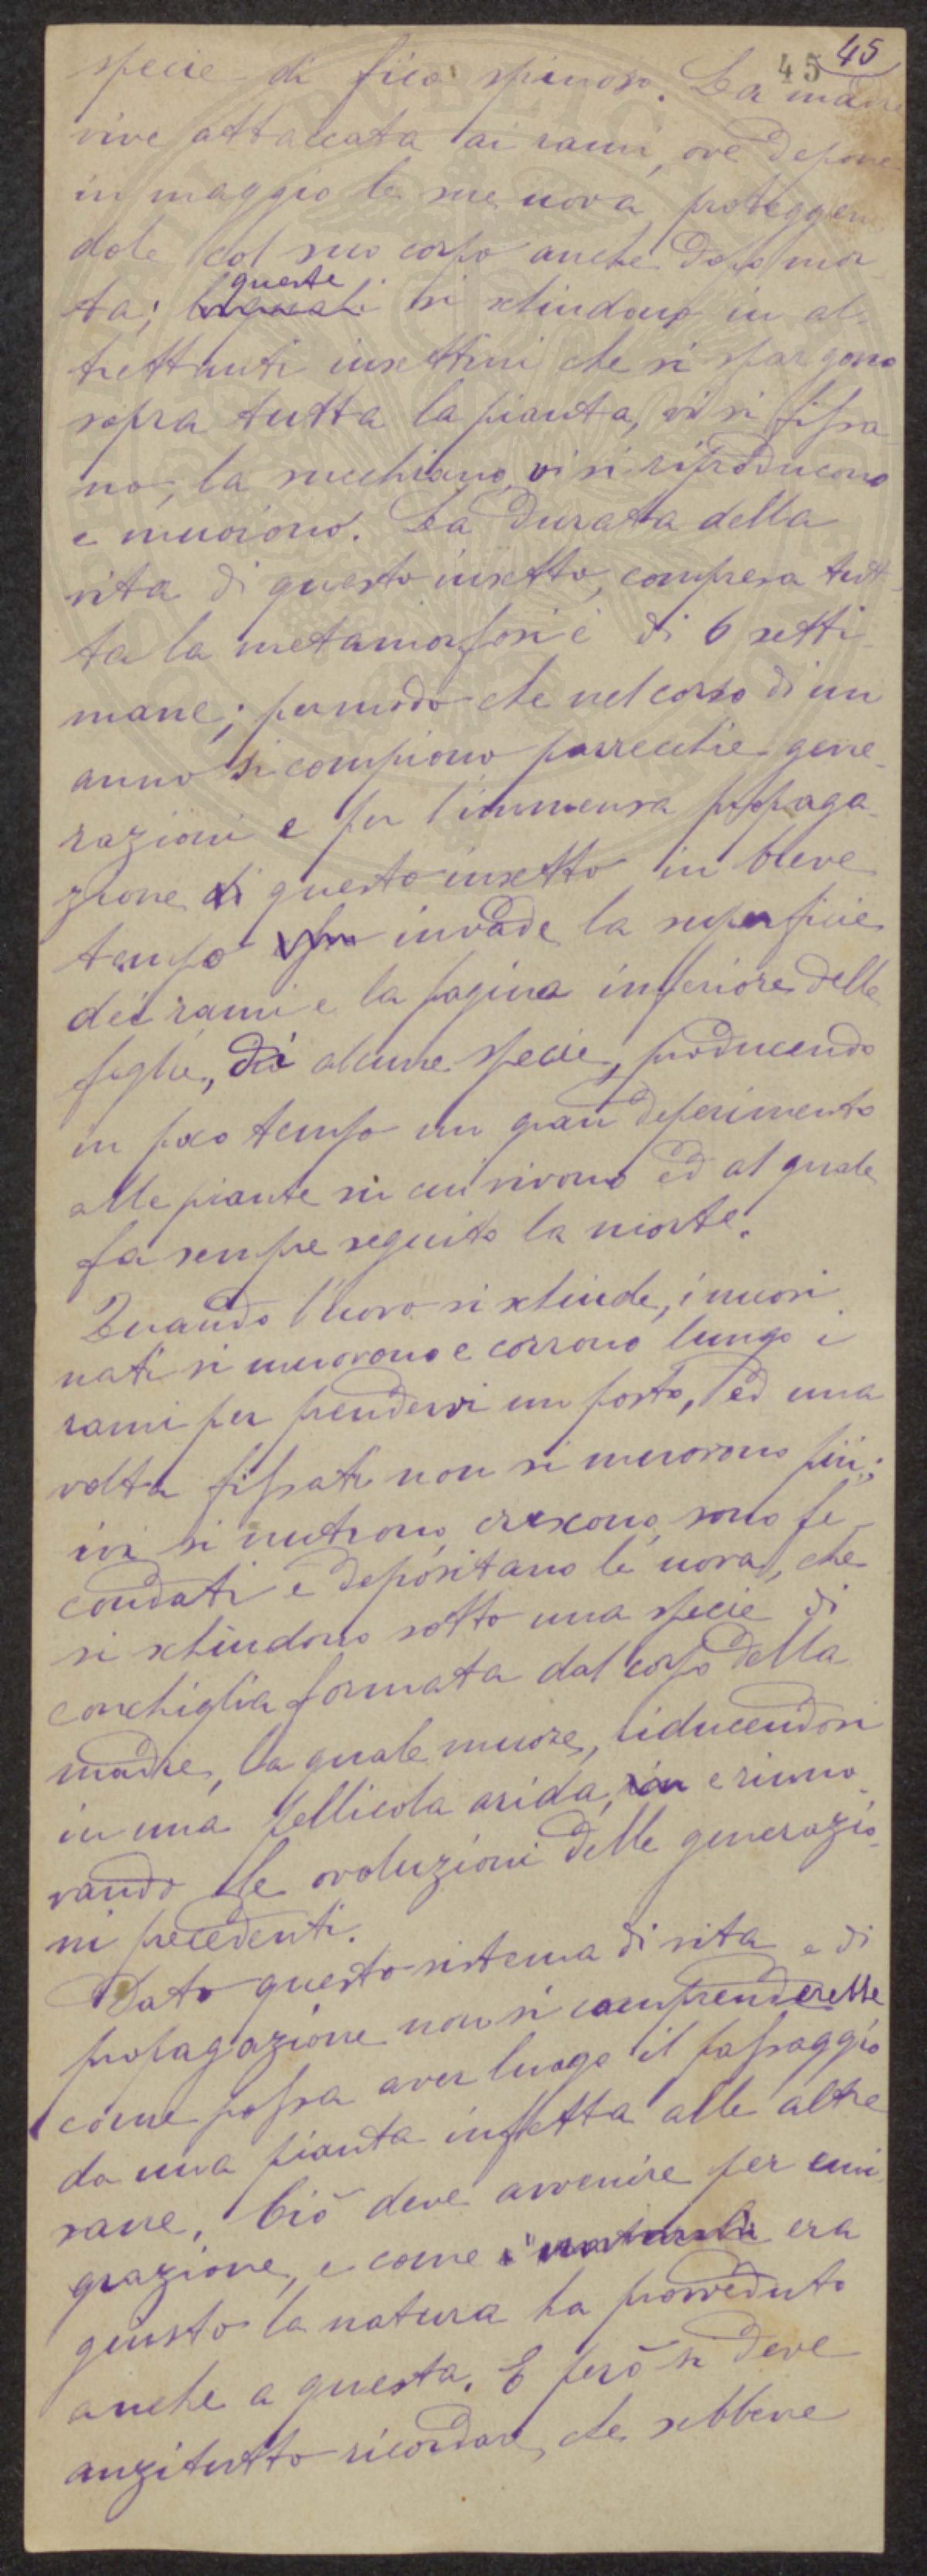 45 45
specie di fico spinoso. La madre
vive attaccata ai rami, ove depone
in maggio le sue uova, proteggen
dole col suo corpo anche dopo mor
ta; queste si schiudono in al-
trettanti insettini che si spargono
sopra tutta la pianta, vi si fissa
no, la succhiano, vi si riproducono
e muoiono. La durata della
vita di questo insetto, compresa tut-
ta la metamorfosi è di 6 setti-
mane; per modo che nel corso di un
anno si compiono parrecchie gene-
razioni e per l'immensa propaga-
zione di questo insetto in breve
tempo invade la superficie
dei rami e la pagina inferiore delle
foglie, di alcune specie, producendo
in poco tempo un gran deperimento
alle piante su cui vivono ed al quale
fa sempre seguito la morte.
Quando l'uovo si schiude, i nuovi
nati si muovono e corrono lungo i
rami per prendervi un posto, ed una
volta fissati non si muovono più;
ivi si nutrono, crescono, sono fe-
condati e depositano le uova, che
si schiudono sotto una specie di
conchiglia formata dal corpo della
madre, la quale muore, riducendosi
in una pellicola arida, e rinno-
vando le evoluzioni delle generazio-
ni precedenti.
Dato questo sistema di vita e di
propagazione non si comprenderebbe
come possa aver luogo il passaggio
da una pianta infetta alle altre
sane. Ciò deve avvenire per emi
grazione, e come era
giusto la natura ha provveduto
anche a questa. E però si deve
anzitutto ricordare, che sebbene